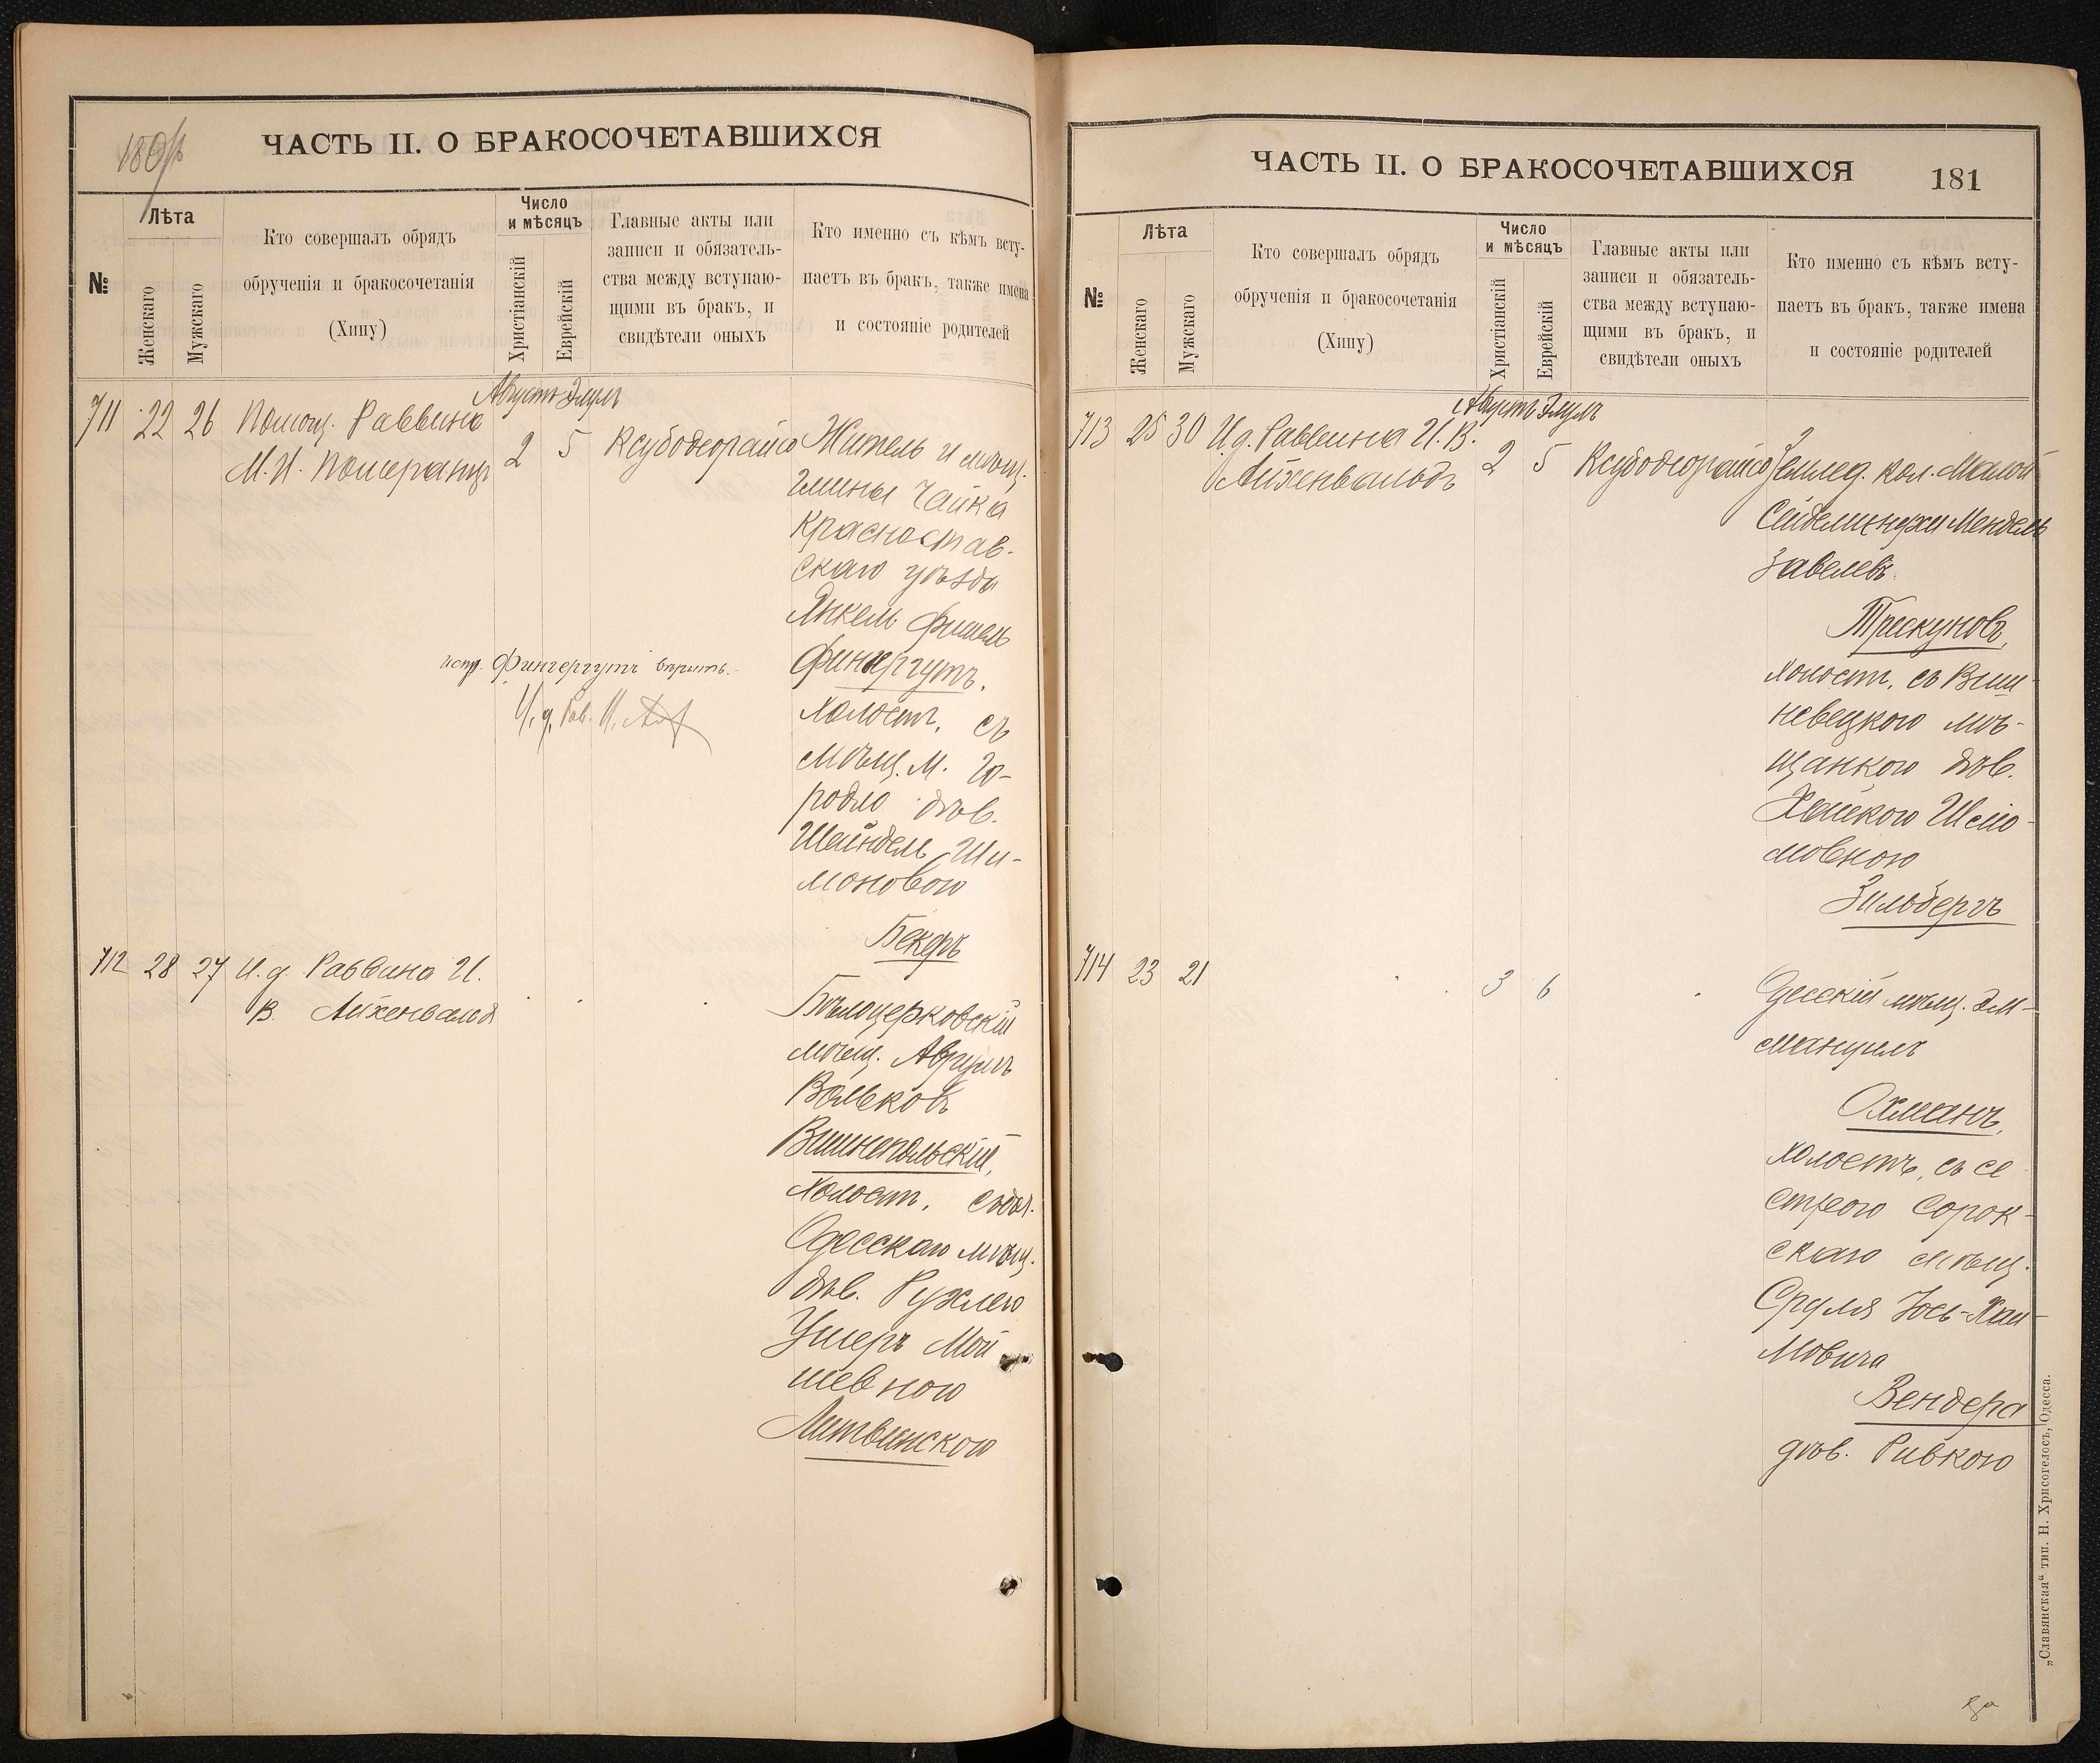 ЧАСТЬ II. О БРАКОСОЧЕТАВШИХСЯ
№
Лѣта
Женскаго
Мужскаго
Кто совершалъ обрядъ
обрученія и бракосочетанія
(Хипу)
Число
и мѣсяцъ
Христіанскій
Еврейскій
Главные акты или
записи и обязатель-
ства между вступаю-
щими въ бракъ, и
свидѣтели оныхъ
Кто именно съ кѣмъ всту-
паетъ въ бракъ, также имена
и состояніе родителей
Августъ Элулъ
711 22 26 Помощ. Раввина
М. И. Померанцъ
2 5 Ксубодеорайсо
Житель и мѣщ.
гмины Чайка
Красностав-
скаго уѣзда
Янкель Фишель
Фингергутъ,
холост, съ
мѣщ. м. Го-
родло дѣв.
Шейндель Ши-
моновою
Бекеръ
испр. Фингергутъ вѣрить.
И. д. Рав. И.
712 28 27 И. д. Раввина И.
В. Айхенвальд
Бѣлоцерковскій
мѣщ. Аврумъ
Вольковъ
Вишнепольскій,
холост, съ доч.
Одесскаго мѣщ.
дѣв. Рухлею
Ушеръ Мой
шевною
Литвинскою
ЧАСТЬ II. О БРАКОСОЧЕТАВШИХСЯ 181
№
Лѣта
Женскаго
Мужскаго
Кто совершалъ обрядъ
обрученія и бракосочетанія
(Хипу)
Число
и мѣсяцъ
Христіанскій
Еврейскій
Главные акты или
записи и обязатель-
ства между вступаю-
щими въ бракъ, и
свидѣтели оныхъ
Кто именно съ кѣмъ всту-
паетъ въ бракъ, также имена
и состояніе родителей
Августъ Элулъ
713 25 30 И. д. Раввина И. В.
Айхенвальдъ
2 5 Ксубодеорайсо
Землед. кол. Малой
Сейделинухи Мендель
Завелевъ
Трискуновъ,
холост, съ Виш-
невецкою мѣ-
щанкою дѣв.
Хайкою Шмо-
мовною
Зильбергъ
714 23 21
3 6
Одесскій мѣщ. Эм-
мануилъ
Охманъ,
холостъ, съ се
строю Сорок-
скаго мѣщ.
Сруля Іось-Хаи-
мовича
Вендера
дѣв. Ривкою
„Славянская“ тип. Н. Хрисогелосъ, Одесса.